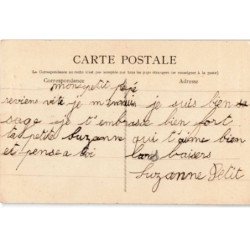 CARTE POSTALE
La Correspondance au recto n'est pas acceptée par tous les pays étrangers (se renseigner à la poste)
Correspondance Adresse
mon petit papé
reviens vite je m'ennuie je suis bien
sage je t'embrasse bien fort
ta petite Suzanne qui t'aime bien
et pense a toi bons baisers
Suzanne Petit